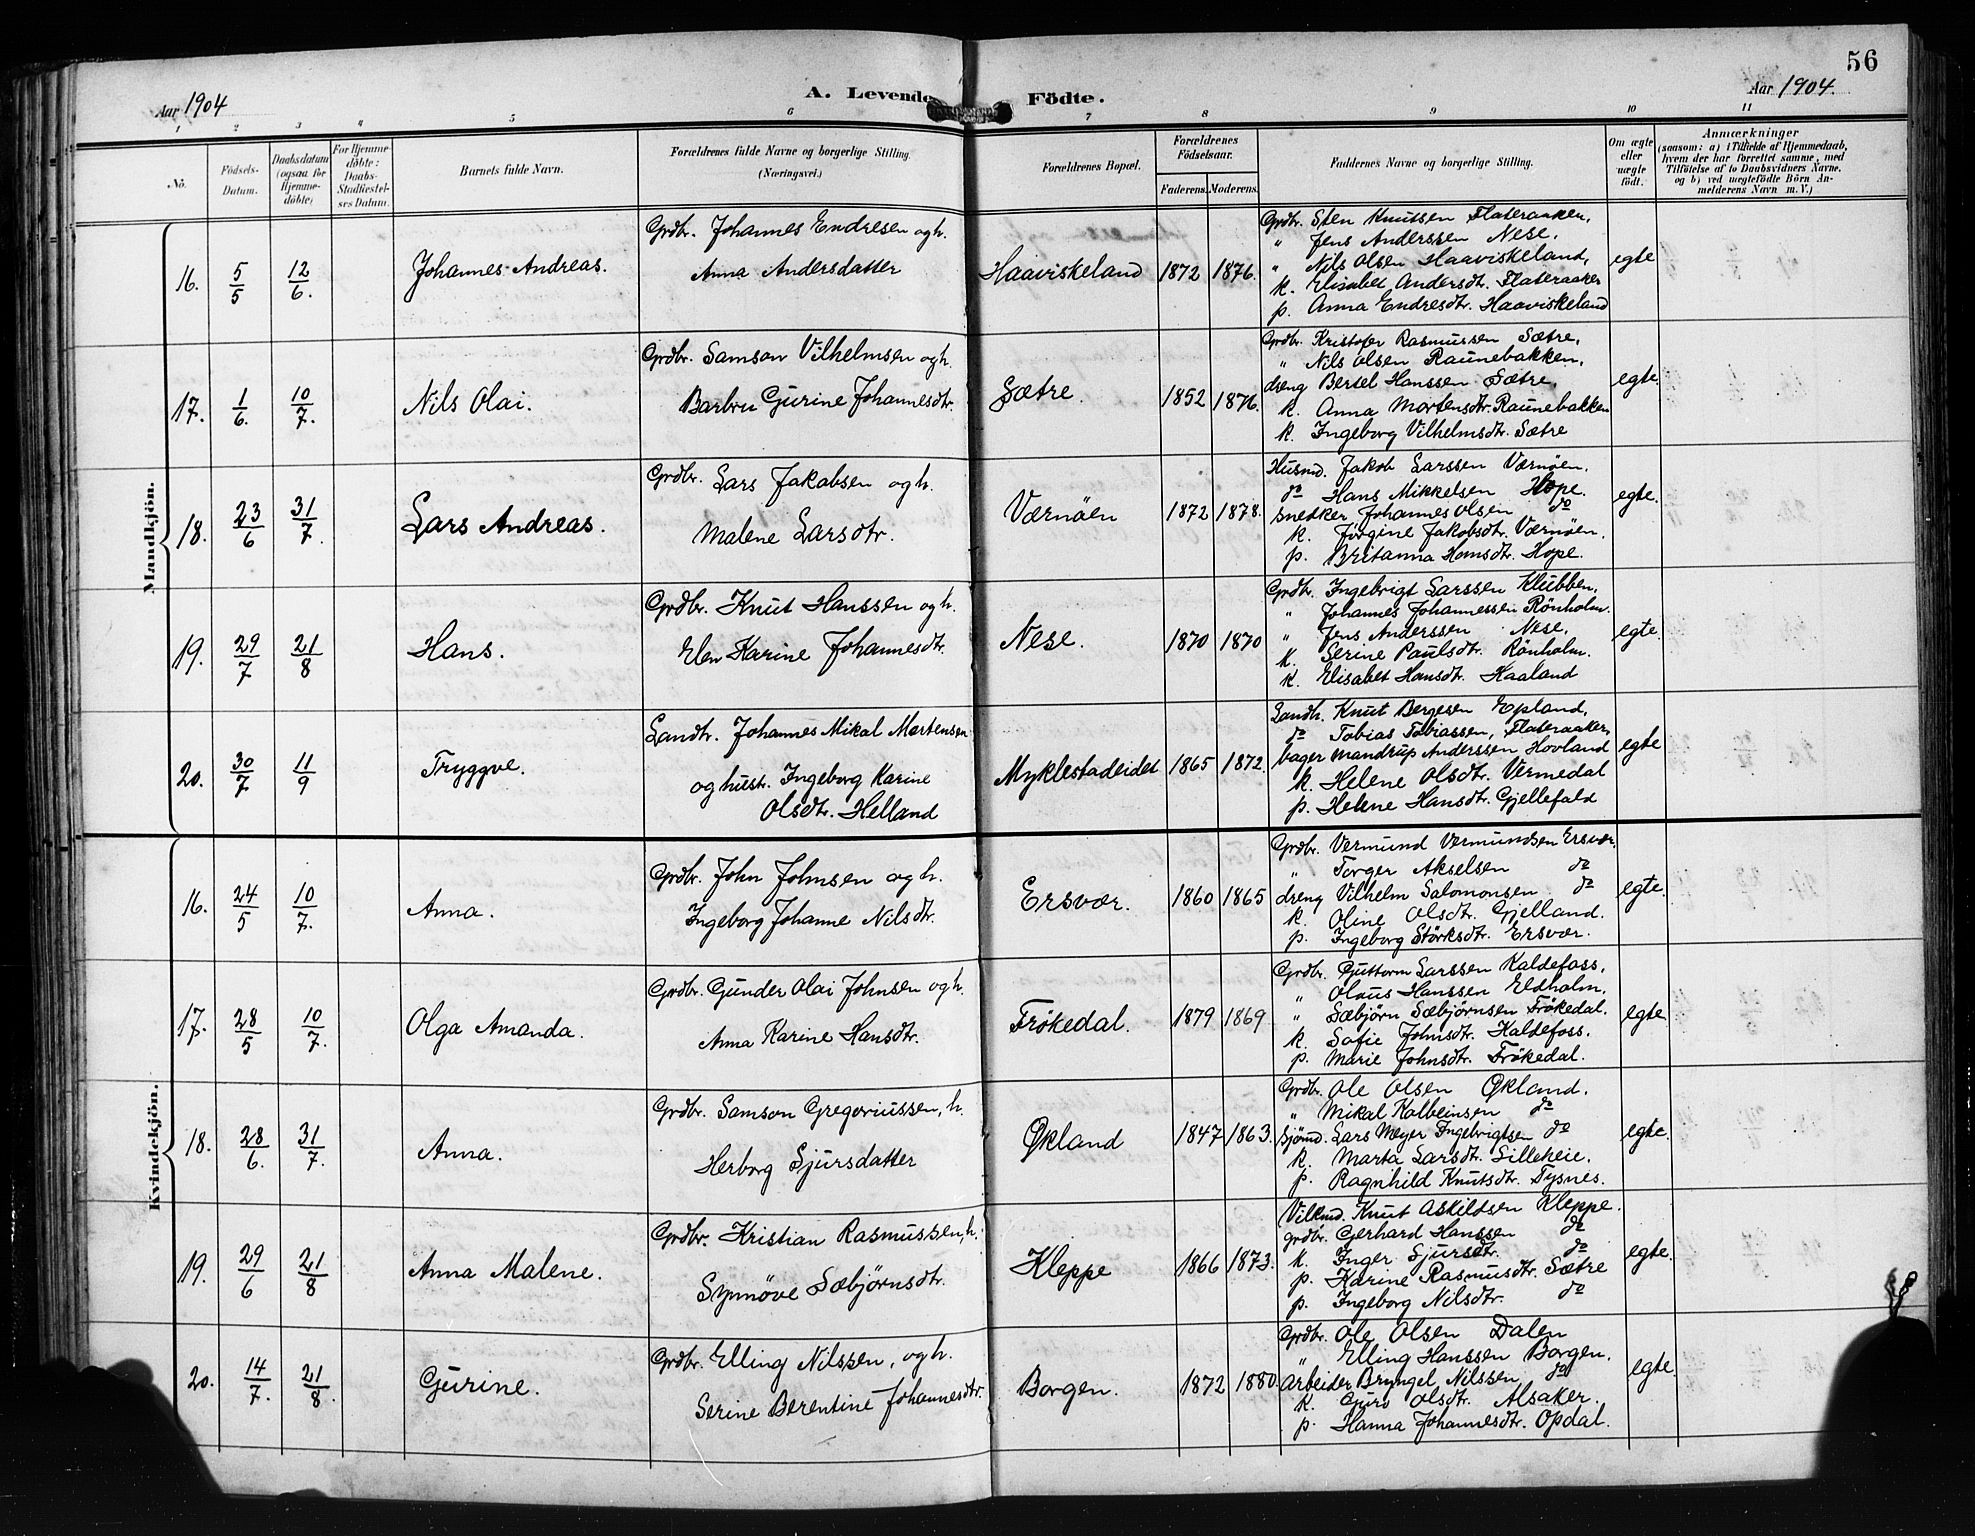 56
Aar 1904
A. Levende Födte.
Aar 1904.
1 2 3 4 5 6 7 8 9 10 11
No.
Födsels-Datum.
Daabsdatum (ogsaa for Hjemmedöbte)
For Hjemmedöbte: Daabs-Stadfæstelses Datum.
Barnets fulde Navn.
Forældrenes fulde Navne og borgerlige Stilling.
(Næringsvei.)
Forældrenes Bopæl.
Forældrenes Födselsaar.
Faderens. Moderens.
Faddernes Navne og borgerlige Stilling.
Om ægte eller uægte födt.
Anmærkninger
(saasom: a) i Tilfælde af Hjemmedaab, hvem der har forrettet samme, med Tilföielse af to Daabsvidners Navne, og b) ved uægtefödte Börn Anmelderens Navn m. V.)
Mandkjön.
16. 5/5 12/6. Johannes Andreas.
Grdbr. Johannes Endresen og h.
Anna Andersdatter
Haaviskeland 1872 1876.
Grdbr. Sten Knutsen Flateraaken,
" Jens Anderssen Nese,
" Nils Olsen Haaviskeland,
k. Elisabet Andersdt. Flateraaker
p. Anna Endresdtr. Haaviskeland
egte
17. 1/6. 10/7. Nils Olai.
Grdbr. Samson Vilhelmsen og h.
Barbru Gurine Johannesdtr.
Sætre. 1852 1876.
Grdbr. Kristofer Rasmussen Sætre,
" Nils Olsen Raunebakken,
dreng Bertel Hanssen Sætre,
k. Anna Mortensdtr. Raunebakken
k. Ingeborg Vilhelmsdtr. Sætre
egte.
18. 23/6 31/7. Lars Andreas.
Grdbr. Lars Jakobsen og h.
Malene Larsdtr.
Værnöen 1872 1878.
Husmd. Jakob Larssen Værnöen,
do Hans Mikkelsen Hope.
snedker Johannes Olsen do
k. Jörgine Jakobsdtr. Værnöen.
p. Britanna Hansdtr. Hope.
egte.
19. 29/7 21/8 Hans.
Grdbr. Knut Hanssen og h.
Elen Karine Johannesdtr.
Nese. 1870 1870
Grdbr. Ingebrigt Larssen Klubben,
" Johannes Johannessen Rönholm.
" Jens Anderssen Nese,
k. Serine Paulsdtr. Rönholm.
k. Elisabet Hansdtr. Haaland
egte.
20. 30/7 11/9 Tryggve.
Landh. Johannes Mikal Mortensen
og hustr. Ingeborg Karine
Olsdtr. Helland
Myklestadeidet 1865 1872.
Landh. Knut Bergesen Epland,
do Tobias Tobiassen, Flateraaker,
bager Mandrup Anderssen Hovland
k. Helene Olsdtr. Vermedal
p. Helene Hansdtr. Gjellefald
egte
Kvindekjön.
16. 24/5 10/7. Anna.
Grdbr. John Johnsen og h.
Ingeborg Johanne Nilsdtr.
Ersvær. 1860 1865
Grdbr. Vermund Vermundsen Ersvær.
" Torger Akselsen do
dreng Vilhelm Salomonsen do
k. Oline Olsdtr. Gjelland.
p. Ingeborg Störksdtr. Ersvær.
egte.
17. 28/5 10/7. Olga Amanda.
Grdbr. Gunder Olai Johnsen og h.
Anna Karine Hansdtr.
Frökedal. 1879 1869
Grdbr. Guttorm Larssen Kaldefoss,
" Olaus Hanssen Eldholm,
" Sæbjörn Sæbjörnsen Frökedal.
k. Sofie Johnsdtr. Kaldefoss.
p. Marie Johnsdtr. Frökedal.
egte
18. 28/6. 31/7. Anna.
Grdbr. Samson Gregoriussen, h.
Herborg Sjursdatter
Økland 1847 1863.
Grdbr. Ole Olsen Økland.
" Mikal Kolbeinsen do
Sjömd. Lars Meyer Ingebrigtsen do
k. Marta Larsdt. Lilleheie.
p. Ragnhild Knutsdtr. Tysnes.
egte.
19. 29/6 21/8 Anna Malene.
Grdbr. Kristian Rasmussen, h.
Synnöve Sæbjörnsdtr.
Kleppe 1866 1873.
Vilkmd. Knut Askildsen Kleppe.
grdbr. Gerhard Hanssen do
k. Inger Sjursdtr. do
p. Karine Rasmusdtr. Sætre
p. Ingeborg Nilsdtr. do
egte.
20. 14/7. 21/8. Gurine.
Grdbr. Elling Nilssen, og h.
Serine Berentine Johannesdtr.
Borgen. 1872 1880.
Grdbr. Ole Olsen Dalen
" Elling Hanssen Borgen.
Arbeider Bryngel Nilssen do
k. Guro Olsdtr. Alsaker.
p. Hanna Johannesdtr. Opdal.
egte.